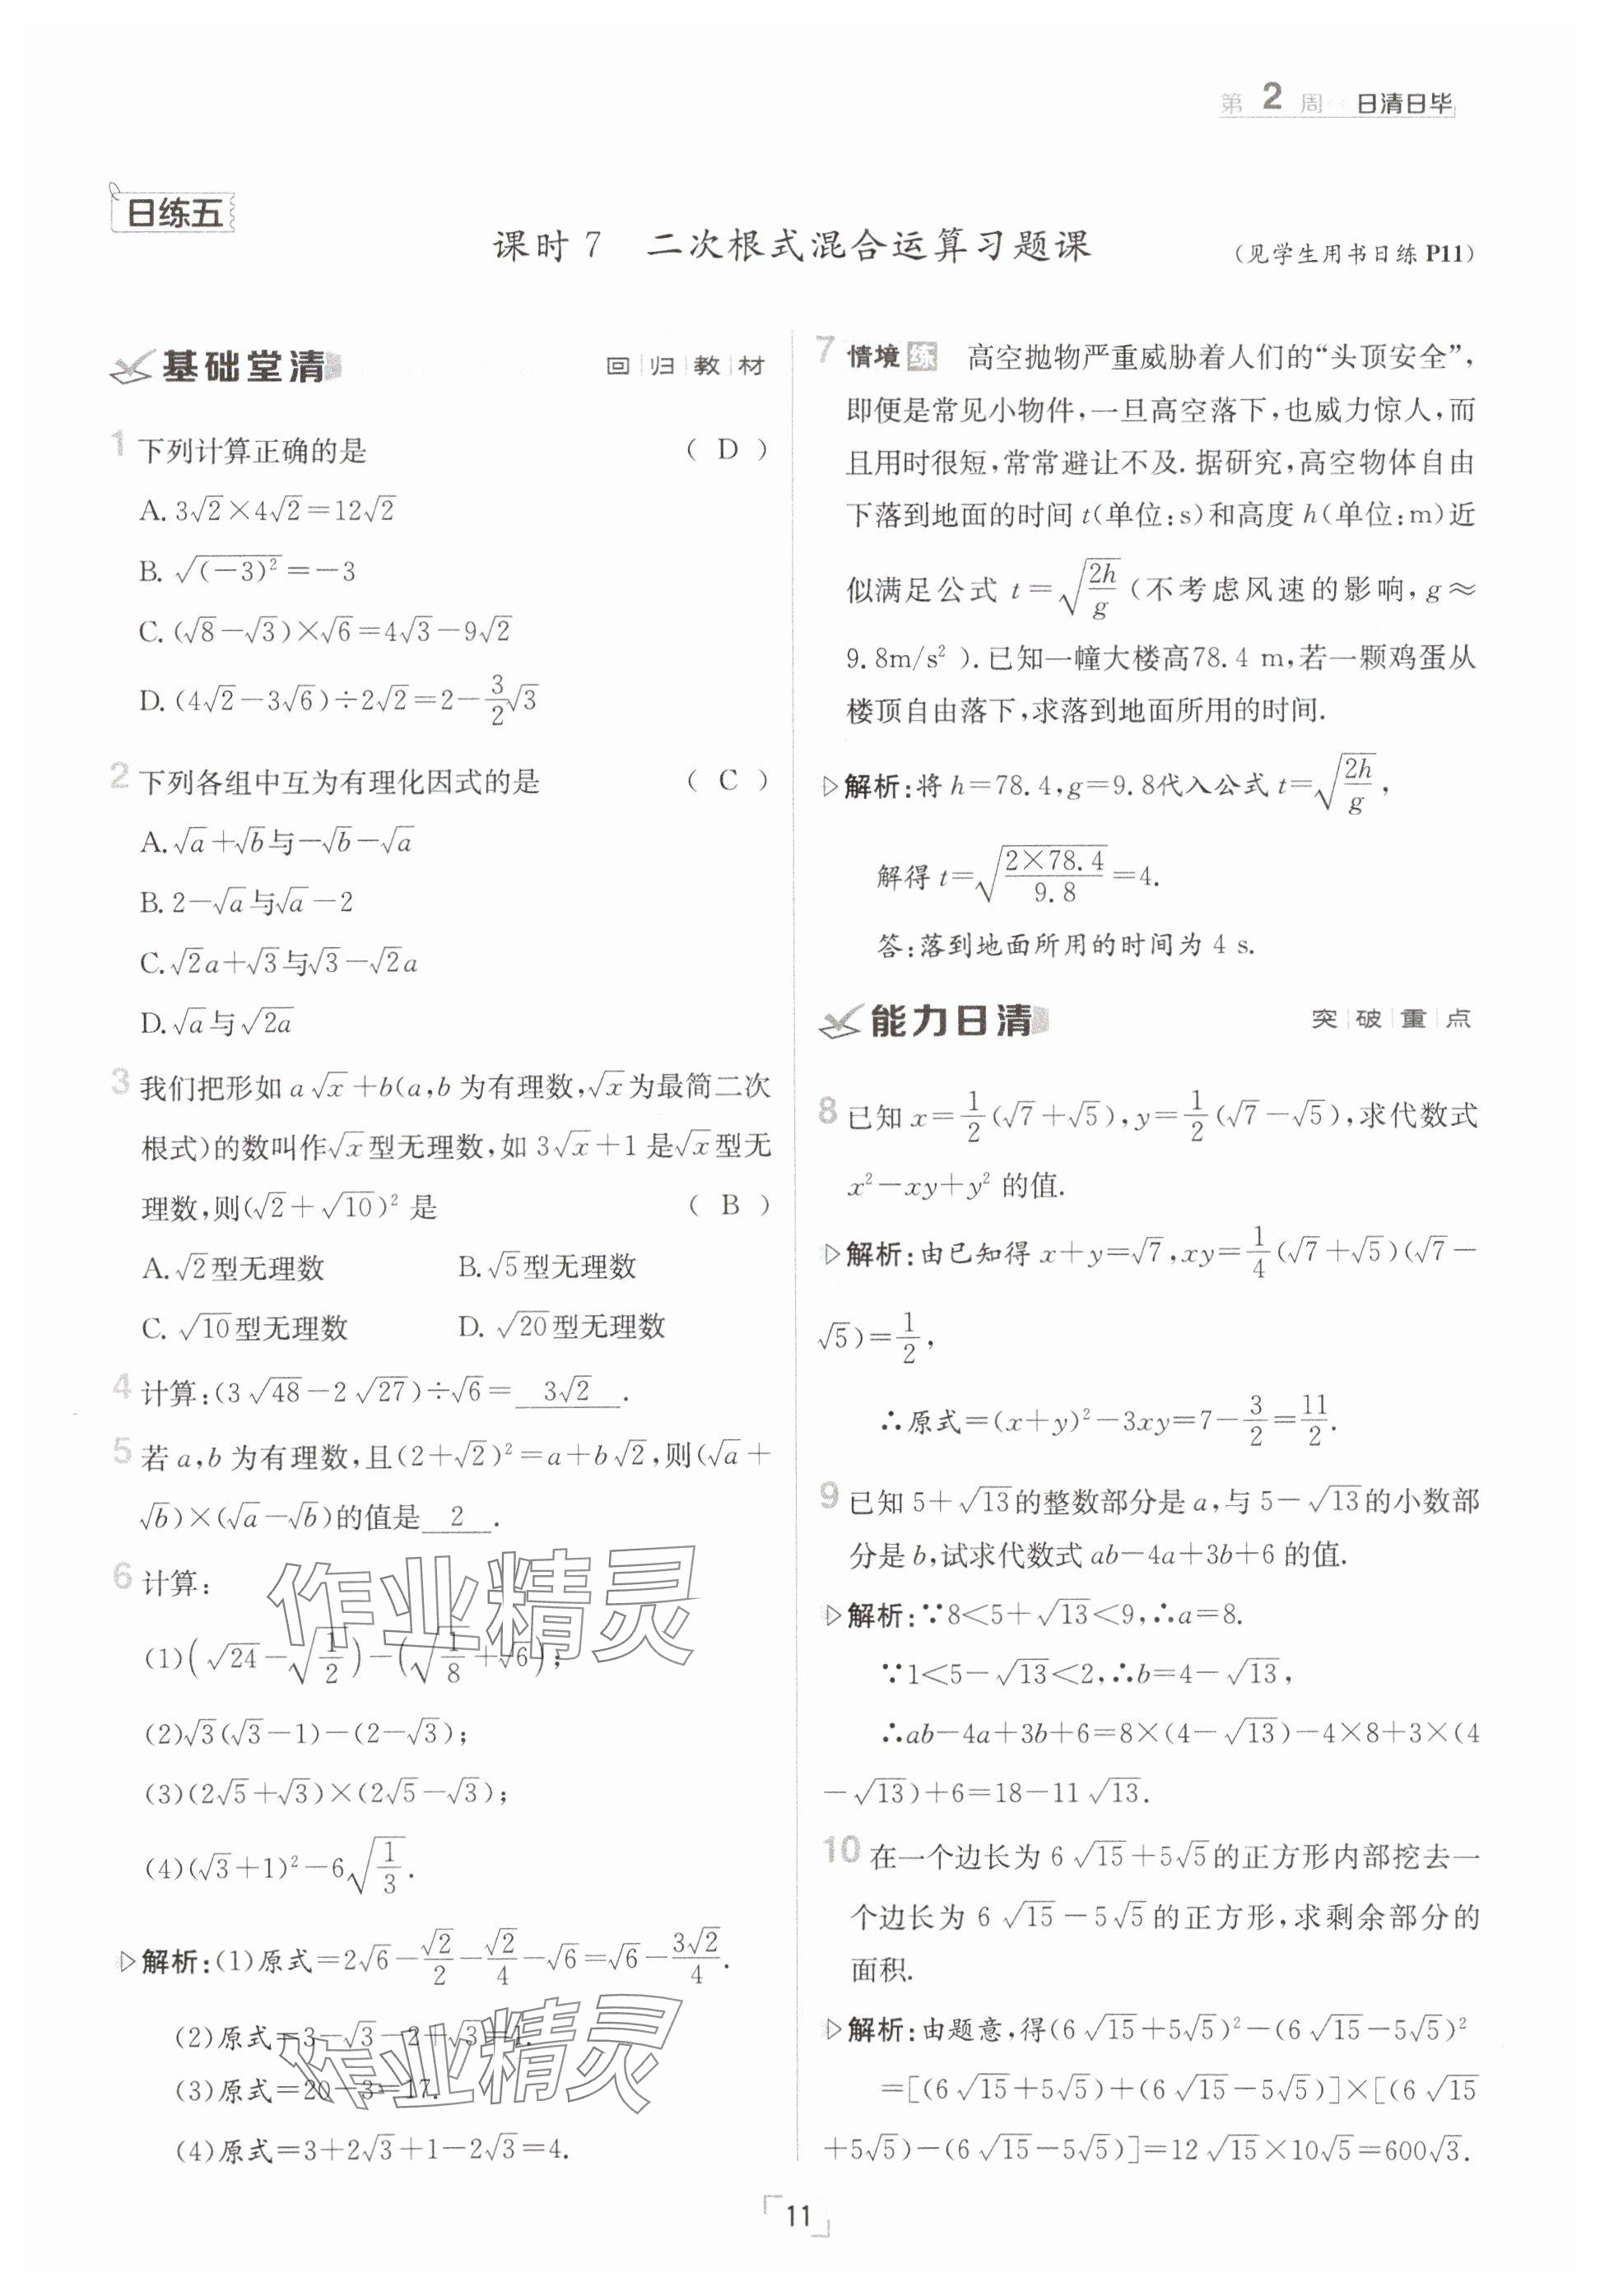 第 2 周 日清日毕
日练五
课时 7 二次根式混合运算习题课 (见学生用书日练 P11)
基础堂清 回|归|教|材
1 下列计算正确的是 ( D )
A. 3√2×4√2=12√2
B. √(-3)²=-3
C. (√8-√3)×√6=4√3-9√2
D. (4√2-3√6)÷2√2=2-3/2√3
2 下列各组中互为有理化因式的是 ( C )
A. √a+√b与-√b-√a
B. 2-√a与√a-2
C. √2a+√3与√3-√2a
D. √a与√(2a)
3 我们把形如 a√x+b(a,b 为有理数,√x为最简二次
根式)的数叫作√x型无理数,如 3√x+1 是√x型无
理数,则(√2+√10)² 是 ( B )
A. √2型无理数 B. √5型无理数
C. √10型无理数 D. √20型无理数
4 计算:(3√48-2√27)÷√6= 3√2 .
5 若 a,b 为有理数,且(2+√2)²=a+b√2,则(√a+
√b)×(√a-√b)的值是 2 .
6 计算:
(1)(√24-√(1/2))-(√(1/8)+√6);
(2)√3(√3-1)-(2-√3);
(3)(2√5+√3)×(2√5-√3);
(4)(√3+1)²-6√(1/3).
解析:(1)原式=2√6-√2/2-√2/4-√6=√6-3√2/4.
(2)原式=3-√3-2+√3=1.
(3)原式=20-3=17.
(4)原式=3+2√3+1-2√3=4.
7 情境练 高空抛物严重威胁着人们的“头顶安全”,
即便是常见小物件,一旦高空落下,也威力惊人,而
且用时很短,常常避让不及. 据研究,高空物体自由
下落到地面的时间 t(单位:s)和高度 h(单位:m)近
似满足公式 t=√(2h/g)(不考虑风速的影响,g≈
9.8m/s² ).已知一幢大楼高78.4 m,若一颗鸡蛋从
楼顶自由落下,求落到地面所用的时间.
解析:将 h=78.4,g=9.8代入公式 t=√(2h/g),
解得 t=√(2×78.4/9.8)=4.
答:落到地面所用的时间为 4 s.
能力日清 突|破|重|点
8 已知 x=1/2(√7+√5),y=1/2(√7-√5),求代数式
x²-xy+y² 的值.
解析:由已知得 x+y=√7,xy=1/4(√7+√5)(√7-
√5)=1/2,
∴原式=(x+y)²-3xy=7-3/2=11/2.
9 已知 5+√13的整数部分是 a,与 5-√13的小数部
分是 b,试求代数式 ab-4a+3b+6 的值.
解析:∵8<5+√13<9,∴a=8.
∵1<5-√13<2,∴b=4-√13,
∴ab-4a+3b+6=8×(4-√13)-4×8+3×(4
-√13)+6=18-11√13.
10 在一个边长为 6√15+5√5的正方形内部挖去一
个边长为 6√15-5√5的正方形,求剩余部分的
面积.
解析:由题意,得(6√15+5√5)²-(6√15-5√5)²
=[(6√15+5√5)+(6√15-5√5)]×[(6√15
+5√5)-(6√15-5√5)]=12√15×10√5=600√3.
作业精灵
作业精灵
11